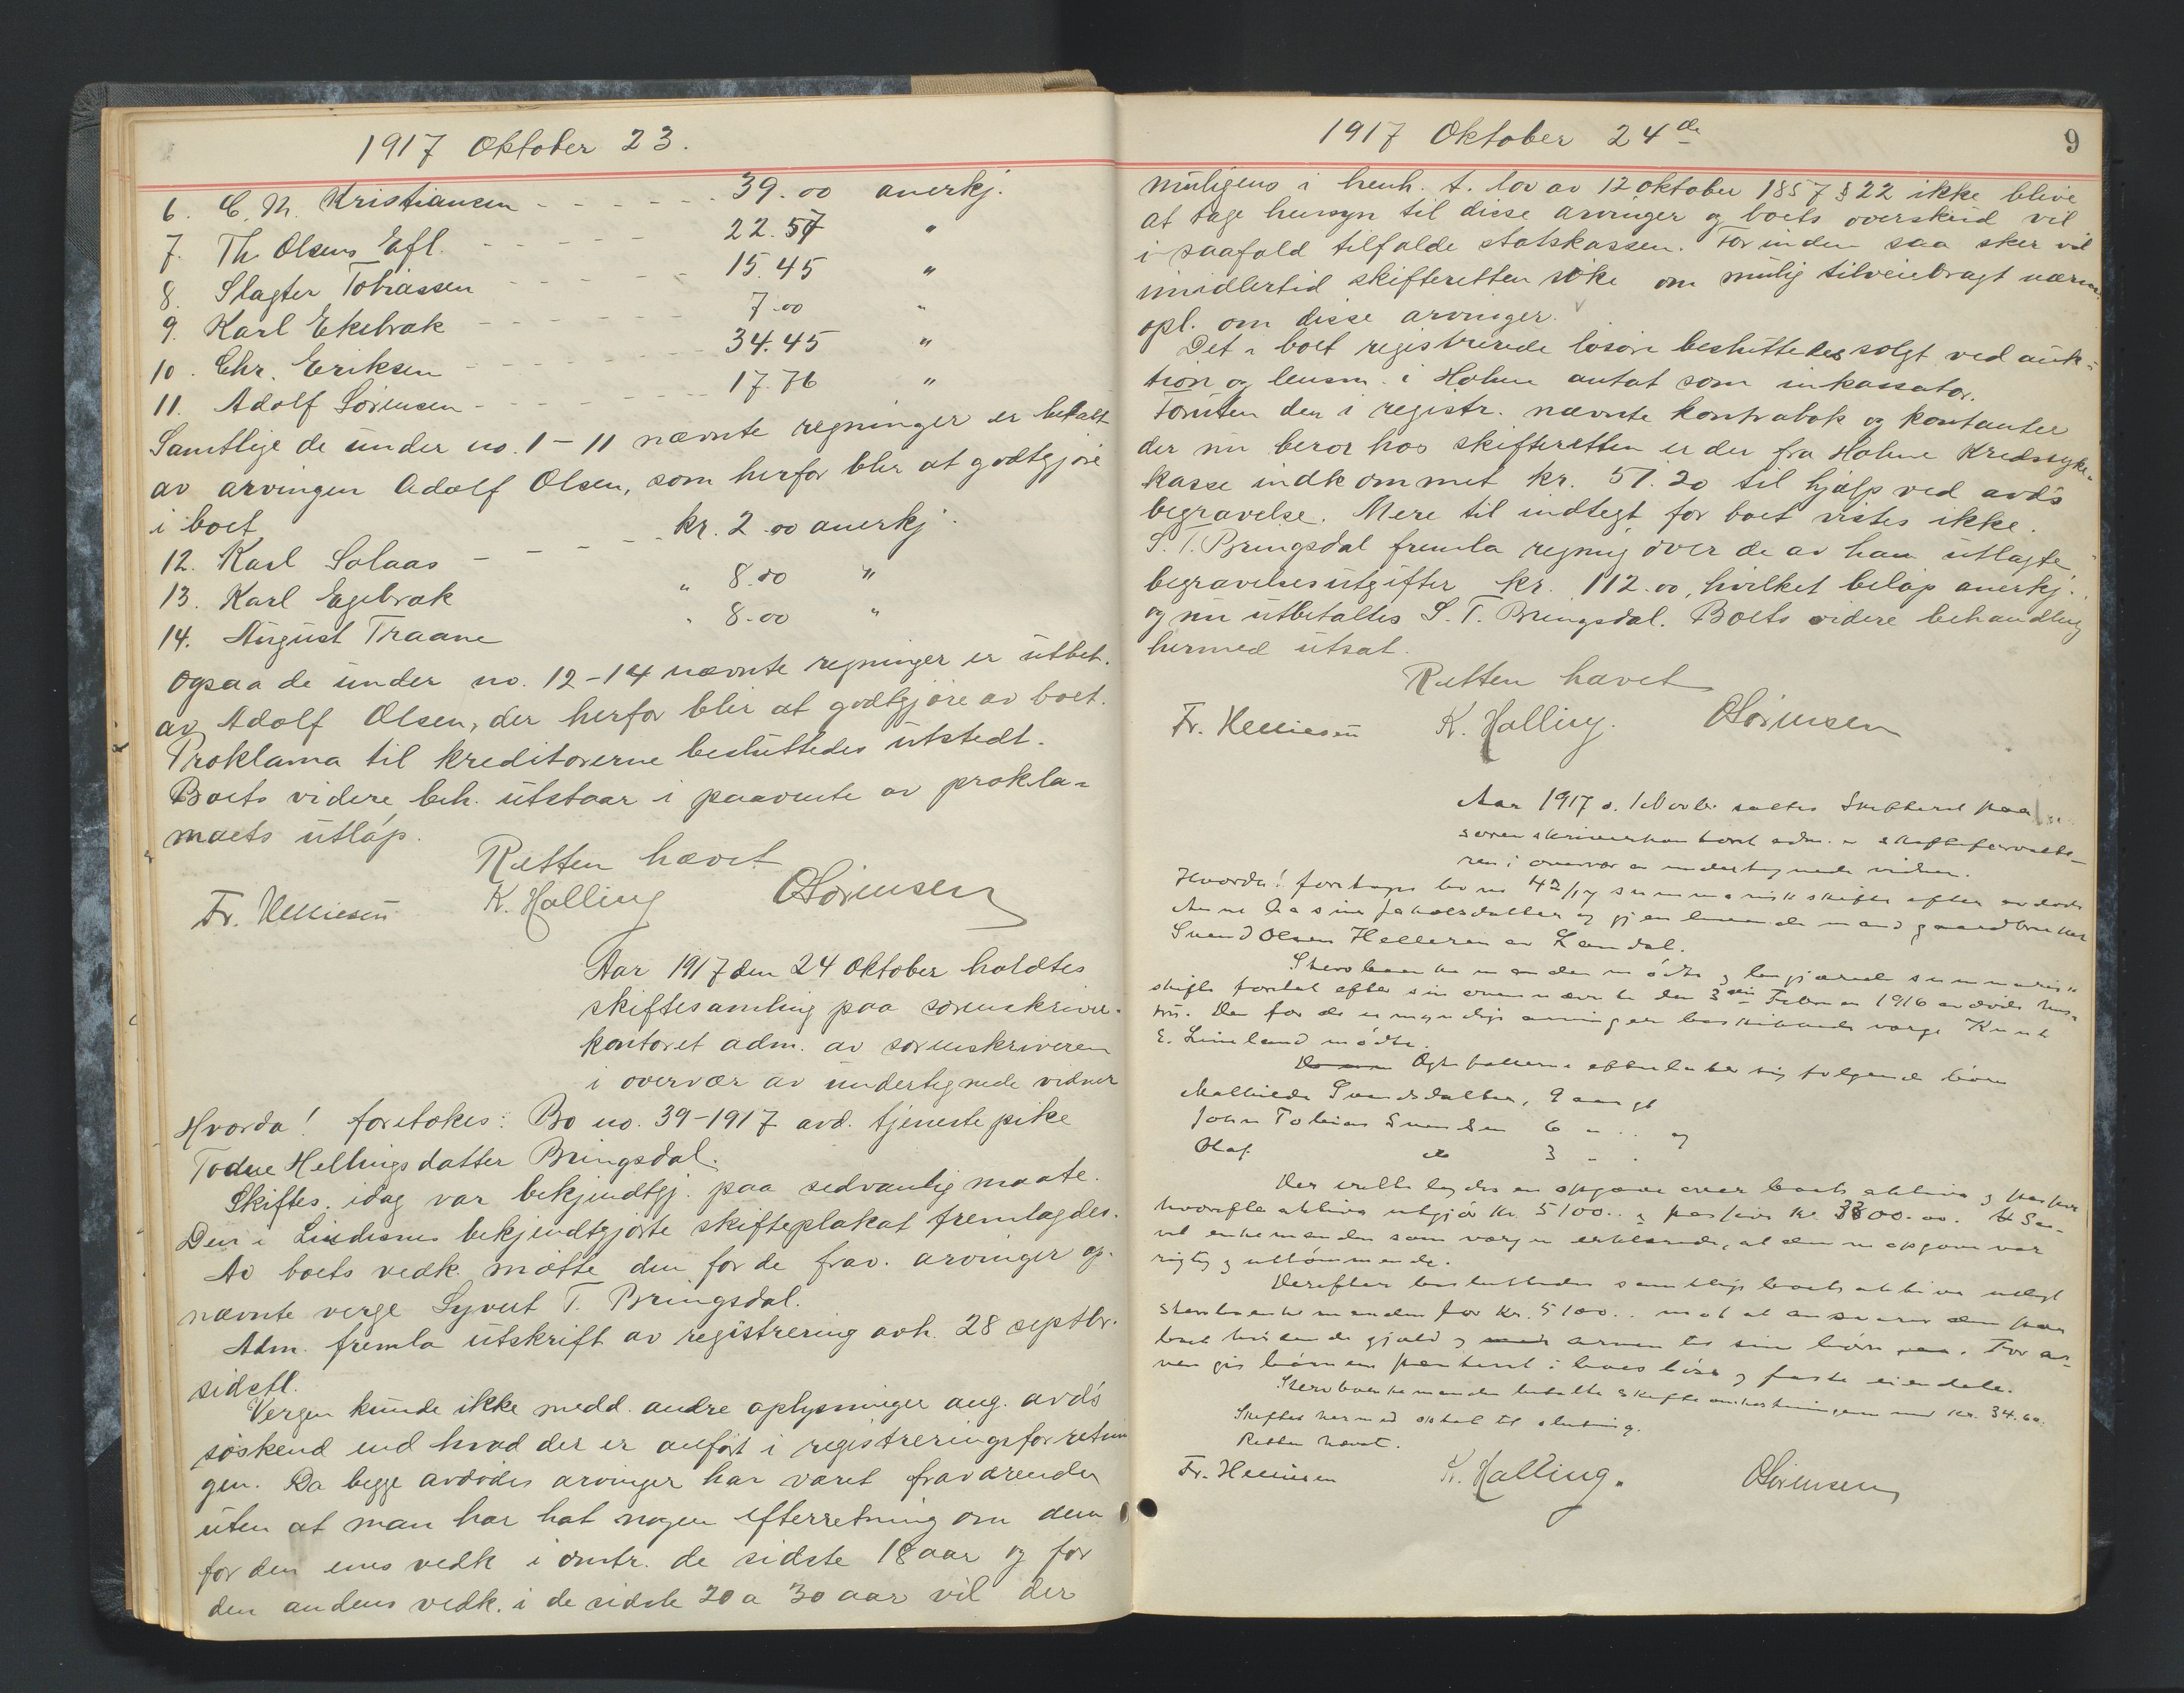 1917 Oktober 23.
6. C. M. Kristiansen - - - - - - 39.00 anerkj.
7. Th Olsens Efl. - - - - - - 22.57 "
8. Slagter Tobiassen - - - 15.45 "
9. Karl Ekebrak - - - - - - 7.00 "
10. Chr. Eriksen - - - - - - 34.45 "
11. Adolf Sörensen - - - - - - 17.76 "
Samtlige de under no. 1 - 11 nævnte regninger er betalt
av arvingen Adolf Olsen, som herfor blir at godtgjöre
i boet
12. Karl Solaas - - - - - kr. 2.00 anerkj.
13. Karl Egebrak " 8.00 "
14. August Traane " 8.00 "
Ogsaa de under no. 12 - 14 nævnte regninger er utbet.
av Adolf Olsen, der herfor blir at godtgjöre av boet.
Proklama til kreditorerne besluttedes utstedt.
Boets videre beh. utstaar i paavente av prokla=
maets utlöp.
Retten hævet
Fr. K. Halling OSörensen
Aar 1917 den 24 Oktober holdtes
skiftesamling paa sorenskriver-
kontoret adm. av sorenskriveren
i overvær av undertegnede vidner
Hvorda! foretokes: Bo no. 39-1917 avd. tjenestepike
Todne Hellingsdatter Bringsdal.
Skiftes. idag var bekjendtgj. paa sedvanlig maate.
Den i Lindesnes bekjendtgjorte skifteplakat fremlagdes.
Av boets vedk. mötte den for de frav. arvinger op-
nævnte verge Syvert T. Bringsdal.
Adm. fremla utskrift av registrering avh. 28 septbr.
sidstl.
Vergen kunde ikke medd. andre oplysninger ang. avd's
söskend end hvad der er anfört i registreringsforretnin
gen. Da begge avdödes arvinger har været fraværende
uten at man har hat nogen efterretning om dem
for den enes vedk i omtr. de sidste 18 aar og for
den andens vedk. i de sidste 20 a 30 aar vil der
1917 Oktober 24de
9
muligens i henh. t. lov av 12 oktober 1857 § 22 ikke blive
at tage hensyn til disse arvinger og boets overskud vil
i saafald tilfalde statskassen. Forinden saa sker vil
imidlertid skifteretten söke om mulig tilveiebragt nærm.
opl. om disse arvinger.
Det i boet registrerede lösöre besluttedes solgt ved auk-
tion og lensm. i Holme antat som inkassator.
Foruten den i registr. nævnte kontrabok og kontanter
der nu beror hos skifteretten er der fra Holme Kredssyke-
kasse indkommet kr. 51.20 til hjælp ved avd's
begravelse. Mere til indtegt for boet vistes ikke.
S. T. Bringsdal fremla regning over de av ham utlagte
begravelsesutgifter kr. 112.00, hvilket belöp anerkj.
og nu utbetaltes S. T. Bringsdal. Boets videre behandling
hermed utsat.
Retten hævet
Fr. K. Halling. OSörensen
Aar 1917 d. 1 Novbr. sattes Skifteret paa
sorenskriverkontoret adm. av skifteforvalte-
ren i overvær av undertegnede vidner.
Hvorda! foretoges bo no 42/17 summarisk skifte efter avdöde
Anne Jakobsdatter og gjenlevende mand gaardbruker
Svend Olsen Helleren av Landal.
Sterboenkemanden mödte og begjærede summarisk
skifte foretat efter sin ovennævnte den 3die Februar 1916 avdöde hus-
tru. Den for de umyndige arvinger beskikkede værge Knut
E. Lineland mödte.
Egtefællerne efterlater sig fölgende börn
Mathilde Svendsdatter, 9 aar gl
John Tobias Svendsen 6 " " og
Olaf do 3 " "
Der fremlagdes en opgave over boets aktiva og passiva
hvorefter aktiva utgjör kr. 5100.. og passiva kr. 3300.00. Saa-
vel enkemanden som værgen erklærede, at denne opgave var
rigtig og uttömmende.
Derefter besluttedes samtlige boets aktiva utlagt
sterboenkemanden for kr. 5100.. mot at ansvare den paa
boet hvilende gjæld og arven til sine börn. For ar-
ven gis börnene panteret i boets löse og faste eiendele.
Sterboenkemanden betalte skifteomkostningerne med kr. 34.60.
Skiftet hermed optat til slutning.
Retten hævet.
Fr. K. Halling. OSörensen